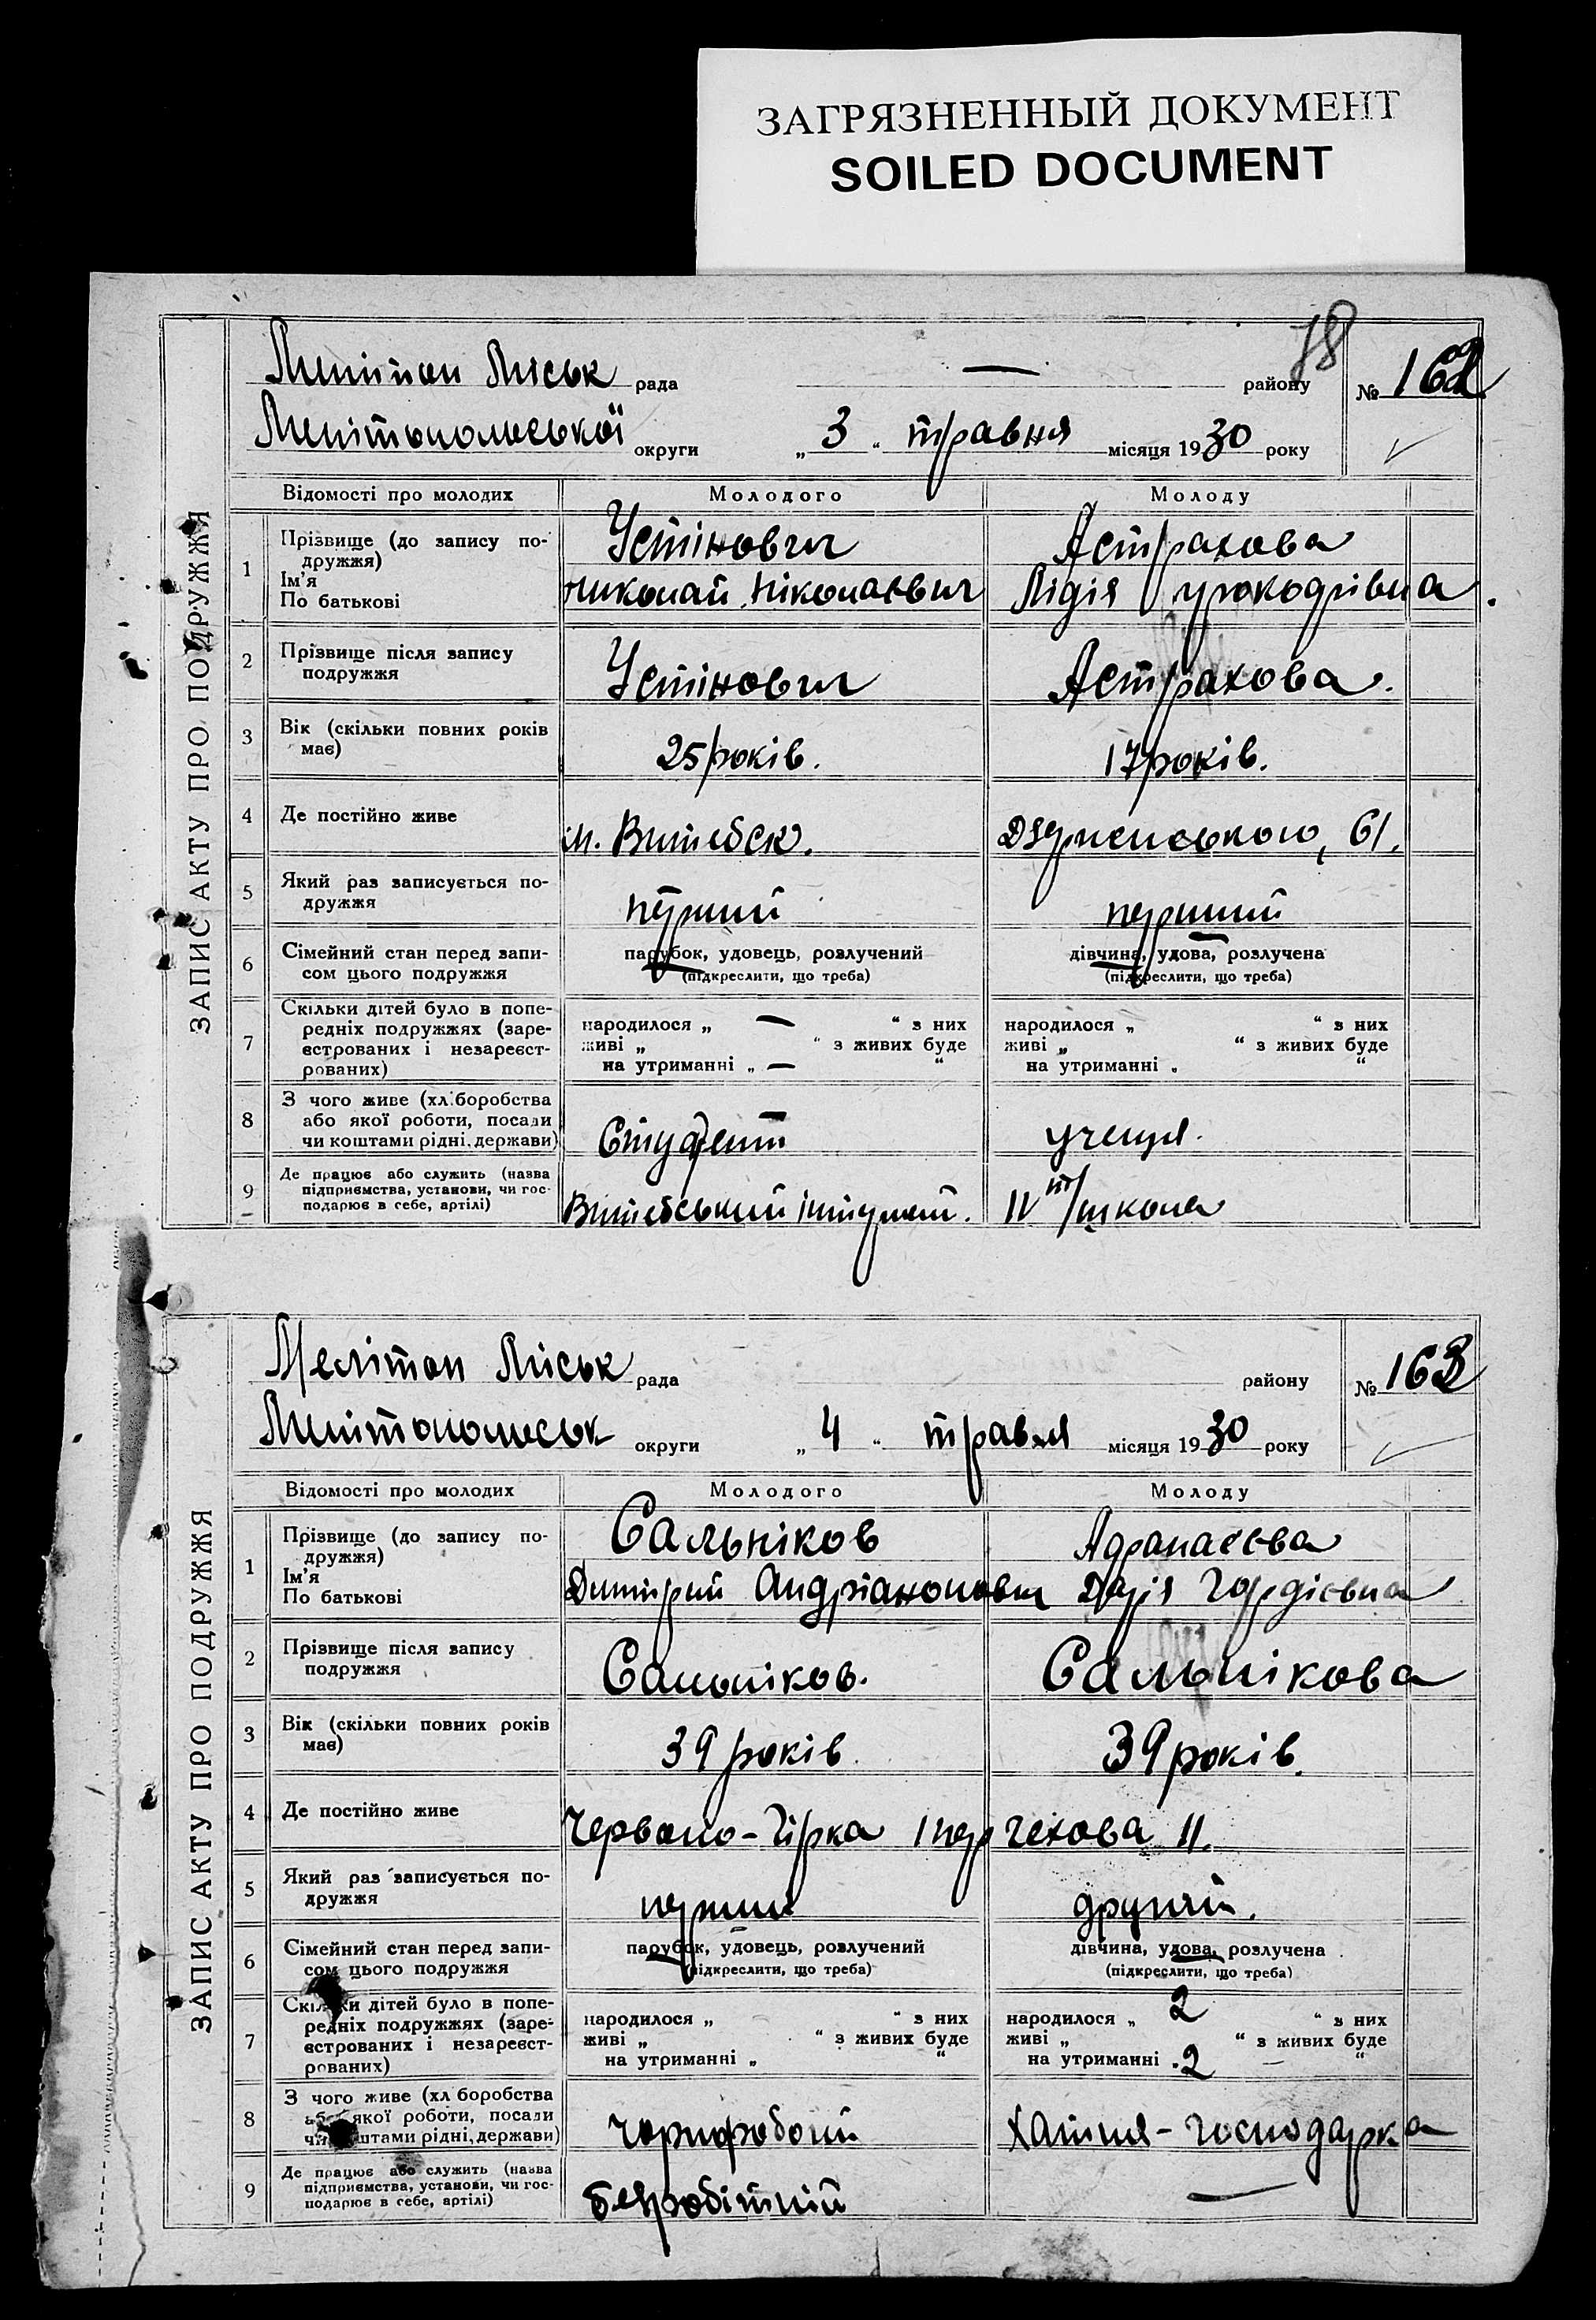 ЗАГРЯЗНЕННЫЙ ДОКУМЕНТ
SOILED DOCUMENT
78
ЗАПИС АКТУ ПРО ПОДРУЖЖЯ
Мелітоп Міськ рада — району № 162
Мелітопольської округи „3“ травня місяця 1930 року
Відомості про молодих Молодого Молоду
1 Прізвище (до запису по-дружжя) Устінович Астрахова
Ім'я
По батькові Николай Ніколаєвич Лідія
2 Прізвище після запису подружжя Устінович Астрахова.
3 Вік (скільки повних років має) 25 років. 17 років.
4 Де постійно живе м. Витебск. Дзерженського, 61.
5 Який раз записується по-дружжя перший перший
6 Сімейний стан перед запи-сом цього подружжя парубок, удовець, розлучений дівчина, удова, розлучена
(підкреслити, що треба) (підкреслити, що треба)
7 Скільки дітей було в попе-редніх подружжях (заре-єстрованих і незареєст-рованих)
народилося „ — “ з них народилося „ “ з них
живі „ “ з живих буде живі „ “ з живих буде
на утриманні „ — “ на утриманні „ “
8 З чого живе (хліборобства або якої роботи, посади чи коштами рідні, держави) Студент учениця.
9 Де працює або служить (назва підприємства, установи, чи гос-подарює в себе, артілі) Витебський школа
ЗАПИС АКТУ ПРО ПОДРУЖЖЯ
Мелітоп Міськ рада району № 163
Мелітопольськ округи „4“ травня місяця 1930 року
Відомості про молодих Молодого Молоду
1 Прізвище (до запису по-дружжя) Сальніков
Ім'я
По батькові Димітрий Андріанонович Дарія Гордієвна
2 Прізвище після запису подружжя Сальніков. Сальнікова
3 Вік (скільки повних років має) 39 років 39 років.
4 Де постійно живе Червоно-Гірка 1 пер Чехова 11.
5 Який раз записується по-дружжя перший другий.
6 Сімейний стан перед запи-сом цього подружжя парубок, удовець, розлучений дівчина, удова, розлучена
(підкреслити, що треба) (підкреслити, що треба)
7 Скільки дітей було в попе-редніх подружжях (заре-єстрованих і незареєст-рованих)
народилося „ “ з них народилося „ 2 “ з них
живі „ “ з живих буде живі „ “ з живих буде
на утриманні „ “ на утриманні 2 — “
8 З чого живе (хліборобства або якої роботи, посади чи коштами рідні, держави) чорнороботий хатня-господарка
9 Де працює або служить (назва підприємства, установи, чи гос-подарює в себе, артілі) безробітній —